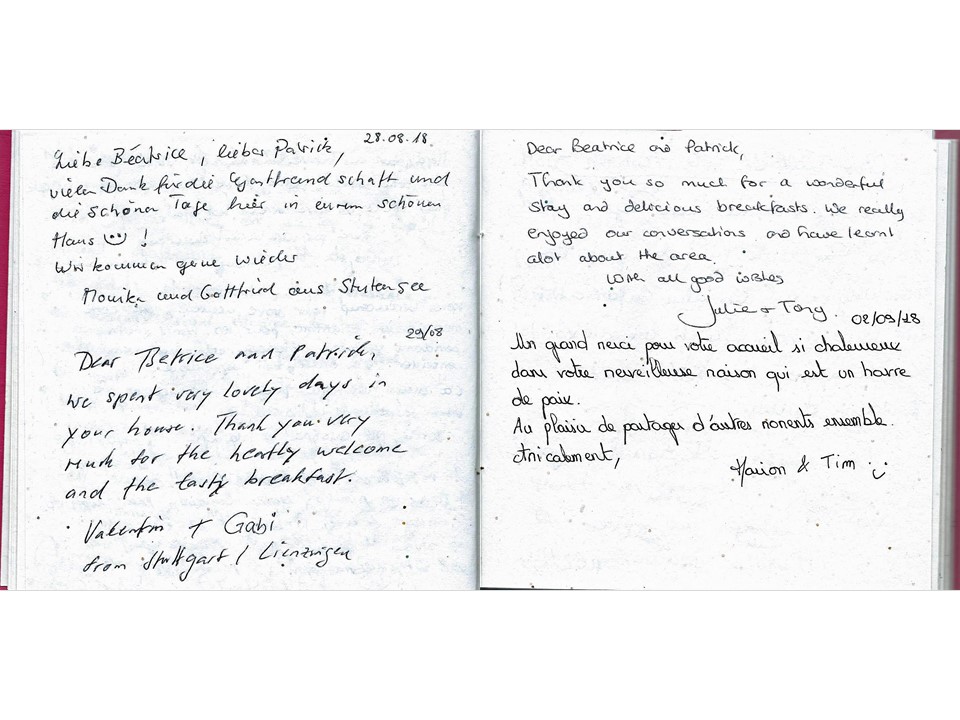 28.08.18
Liebe Béatrice, lieber Patrick,
vielen Dank für die Gastfreundschaft und
die schönen Tage hier in eurem schönen
Haus !
Wir kommen gerne wieder
Monika und Gottfried aus Stutensee
29/08
Dear Betrice and Patrick,
we spent very lovely days in
your house. Thank you very
much for the heartly welcome
and the tasty breakfast.
Valentin + Gabi
from Stuttgart / Lienzingen
Dear Beatrice and Patrick,
Thank you so much for a wonderful
stay and delicious breakfasts. We really
enjoyed our conversations and have learnt
alot about the area.
With all good wishes
Julie + Tony.
02/09/18
Un grand merci pour votre accueil si chaleureux
dans votre merveilleuse maison qui est un havre
de paix.
Au plaisir de partager d'autres moments ensemble.
Amicalement,
Marion & Tim